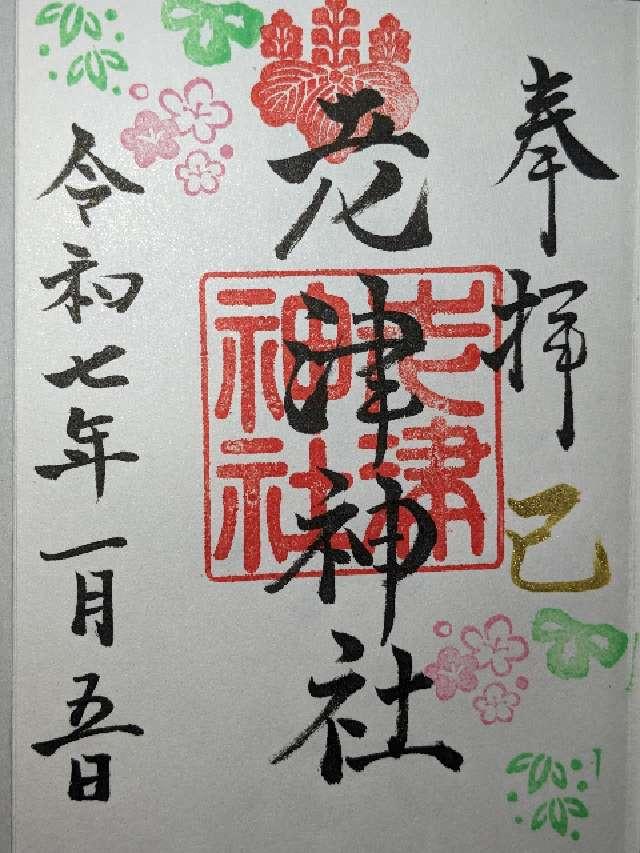 奉拝
巳
老津神社
老津神社
令和七年一月五日